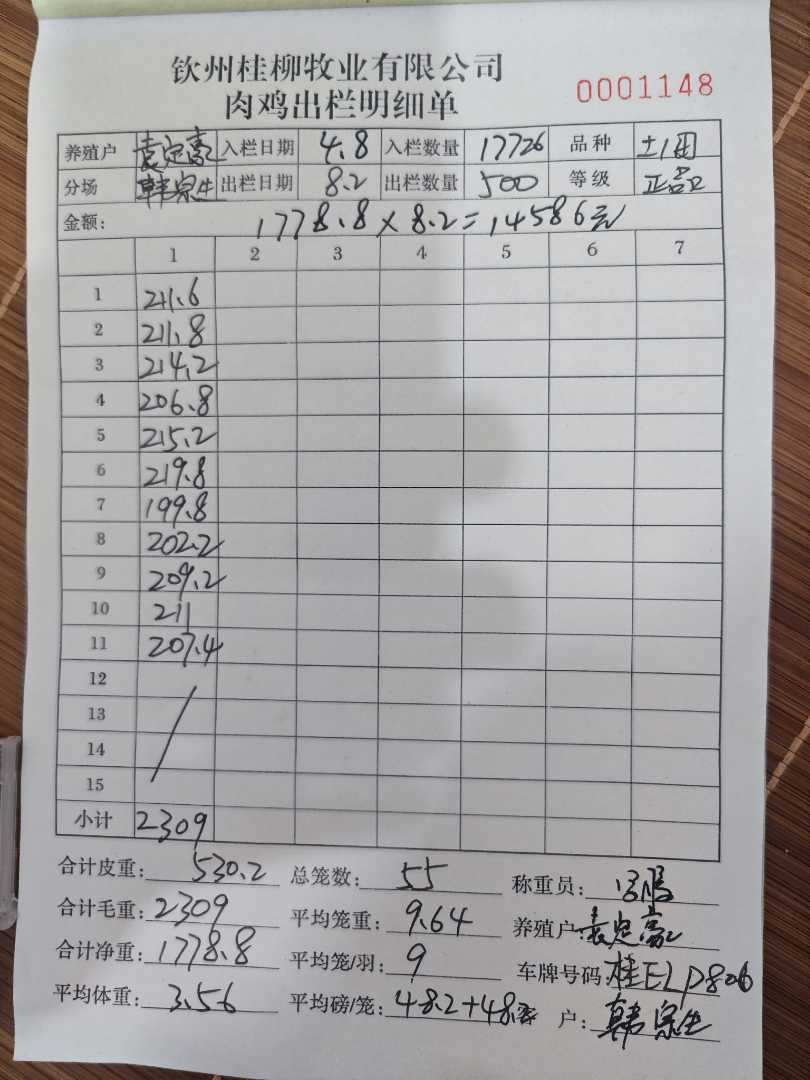 钦州桂柳牧业有限公司
肉鸡出栏明细单 0001148
养殖户 袁定富 入栏日期 4.8 入栏数量 17726 品种 土1
分场 韩宗生 出栏日期 8.2 出栏数量 500 等级 正品
金额: 1778.8×8.2=14586元
1 2 3 4 5 6 7
1 211.6
2 211.8
3 214.2
4 206.8
5 215.2
6 219.8
7 199.8
8 202.2
9 209.2
10 211
11 207.4
12
13
14
15
小计 2309
合计皮重: 530.2 总笼数: 55 称重员:
合计毛重: 2309 平均笼重: 9.64 养殖户: 袁定富
合计净重: 1778.8 平均笼/羽: 9 车牌号码: 桂ELP806
平均体重: 3.56 平均磅/笼: 48.2+48. 户: 韩宗生